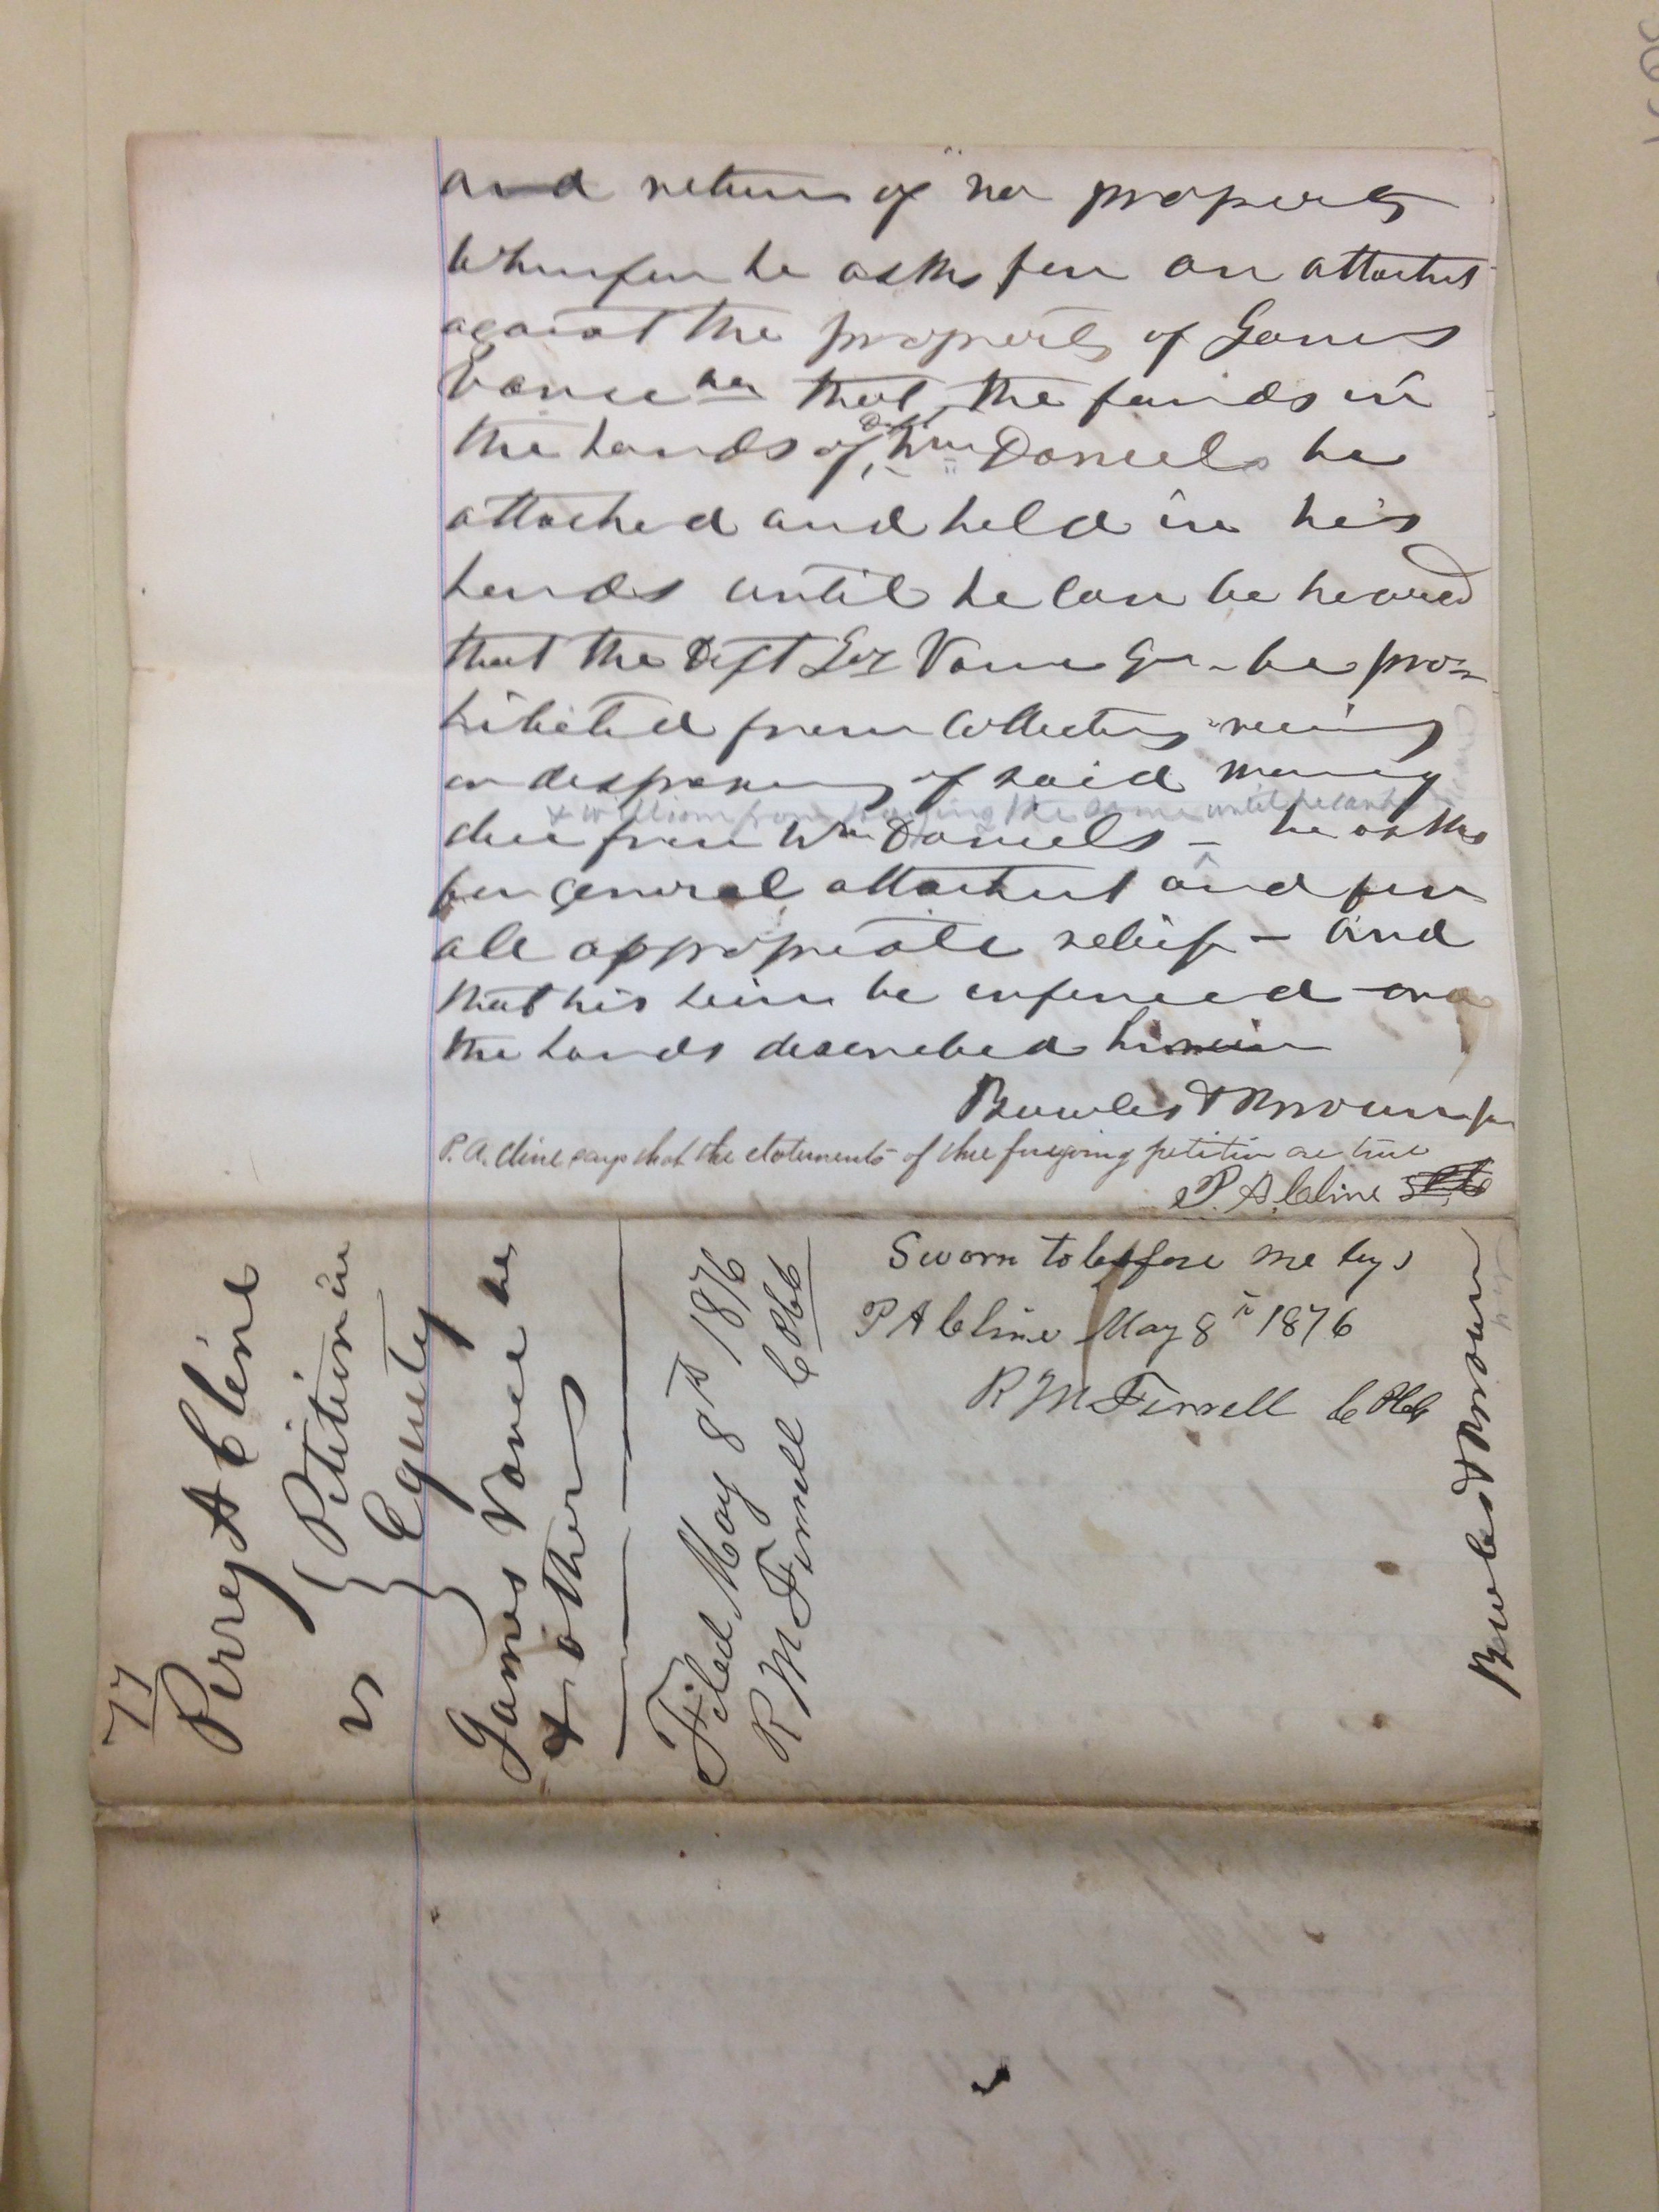 and return of "no property
Wherefore he asks for an attachmt
against the property of James
Vance Sr that the funds in
the hands of Deft Wm Daniels be
attached and held in his
hands until he can be heared
that the Deft Jas Vance Sr be pro=
hibited from Collecting receiving
or desposing of said money
& William from paying the same until he can be heard
due from Wm Daniels - he asks
for general attachmt and for
all appropriate relief - and
that his lein be enforced on
the lands described herein
Bowles & Brown for
P. A. Cline says that the statements of the foregoing petition are true
P. A. Cline
Sworn to before me by
P A Cline May 8th 1876
R M Ferrell C
77
Perry A Cline
vs } Petition in
Equity
James Vance Sr
& others
Filed May 8th 1876
R M Ferrell C
Bowles & Brown